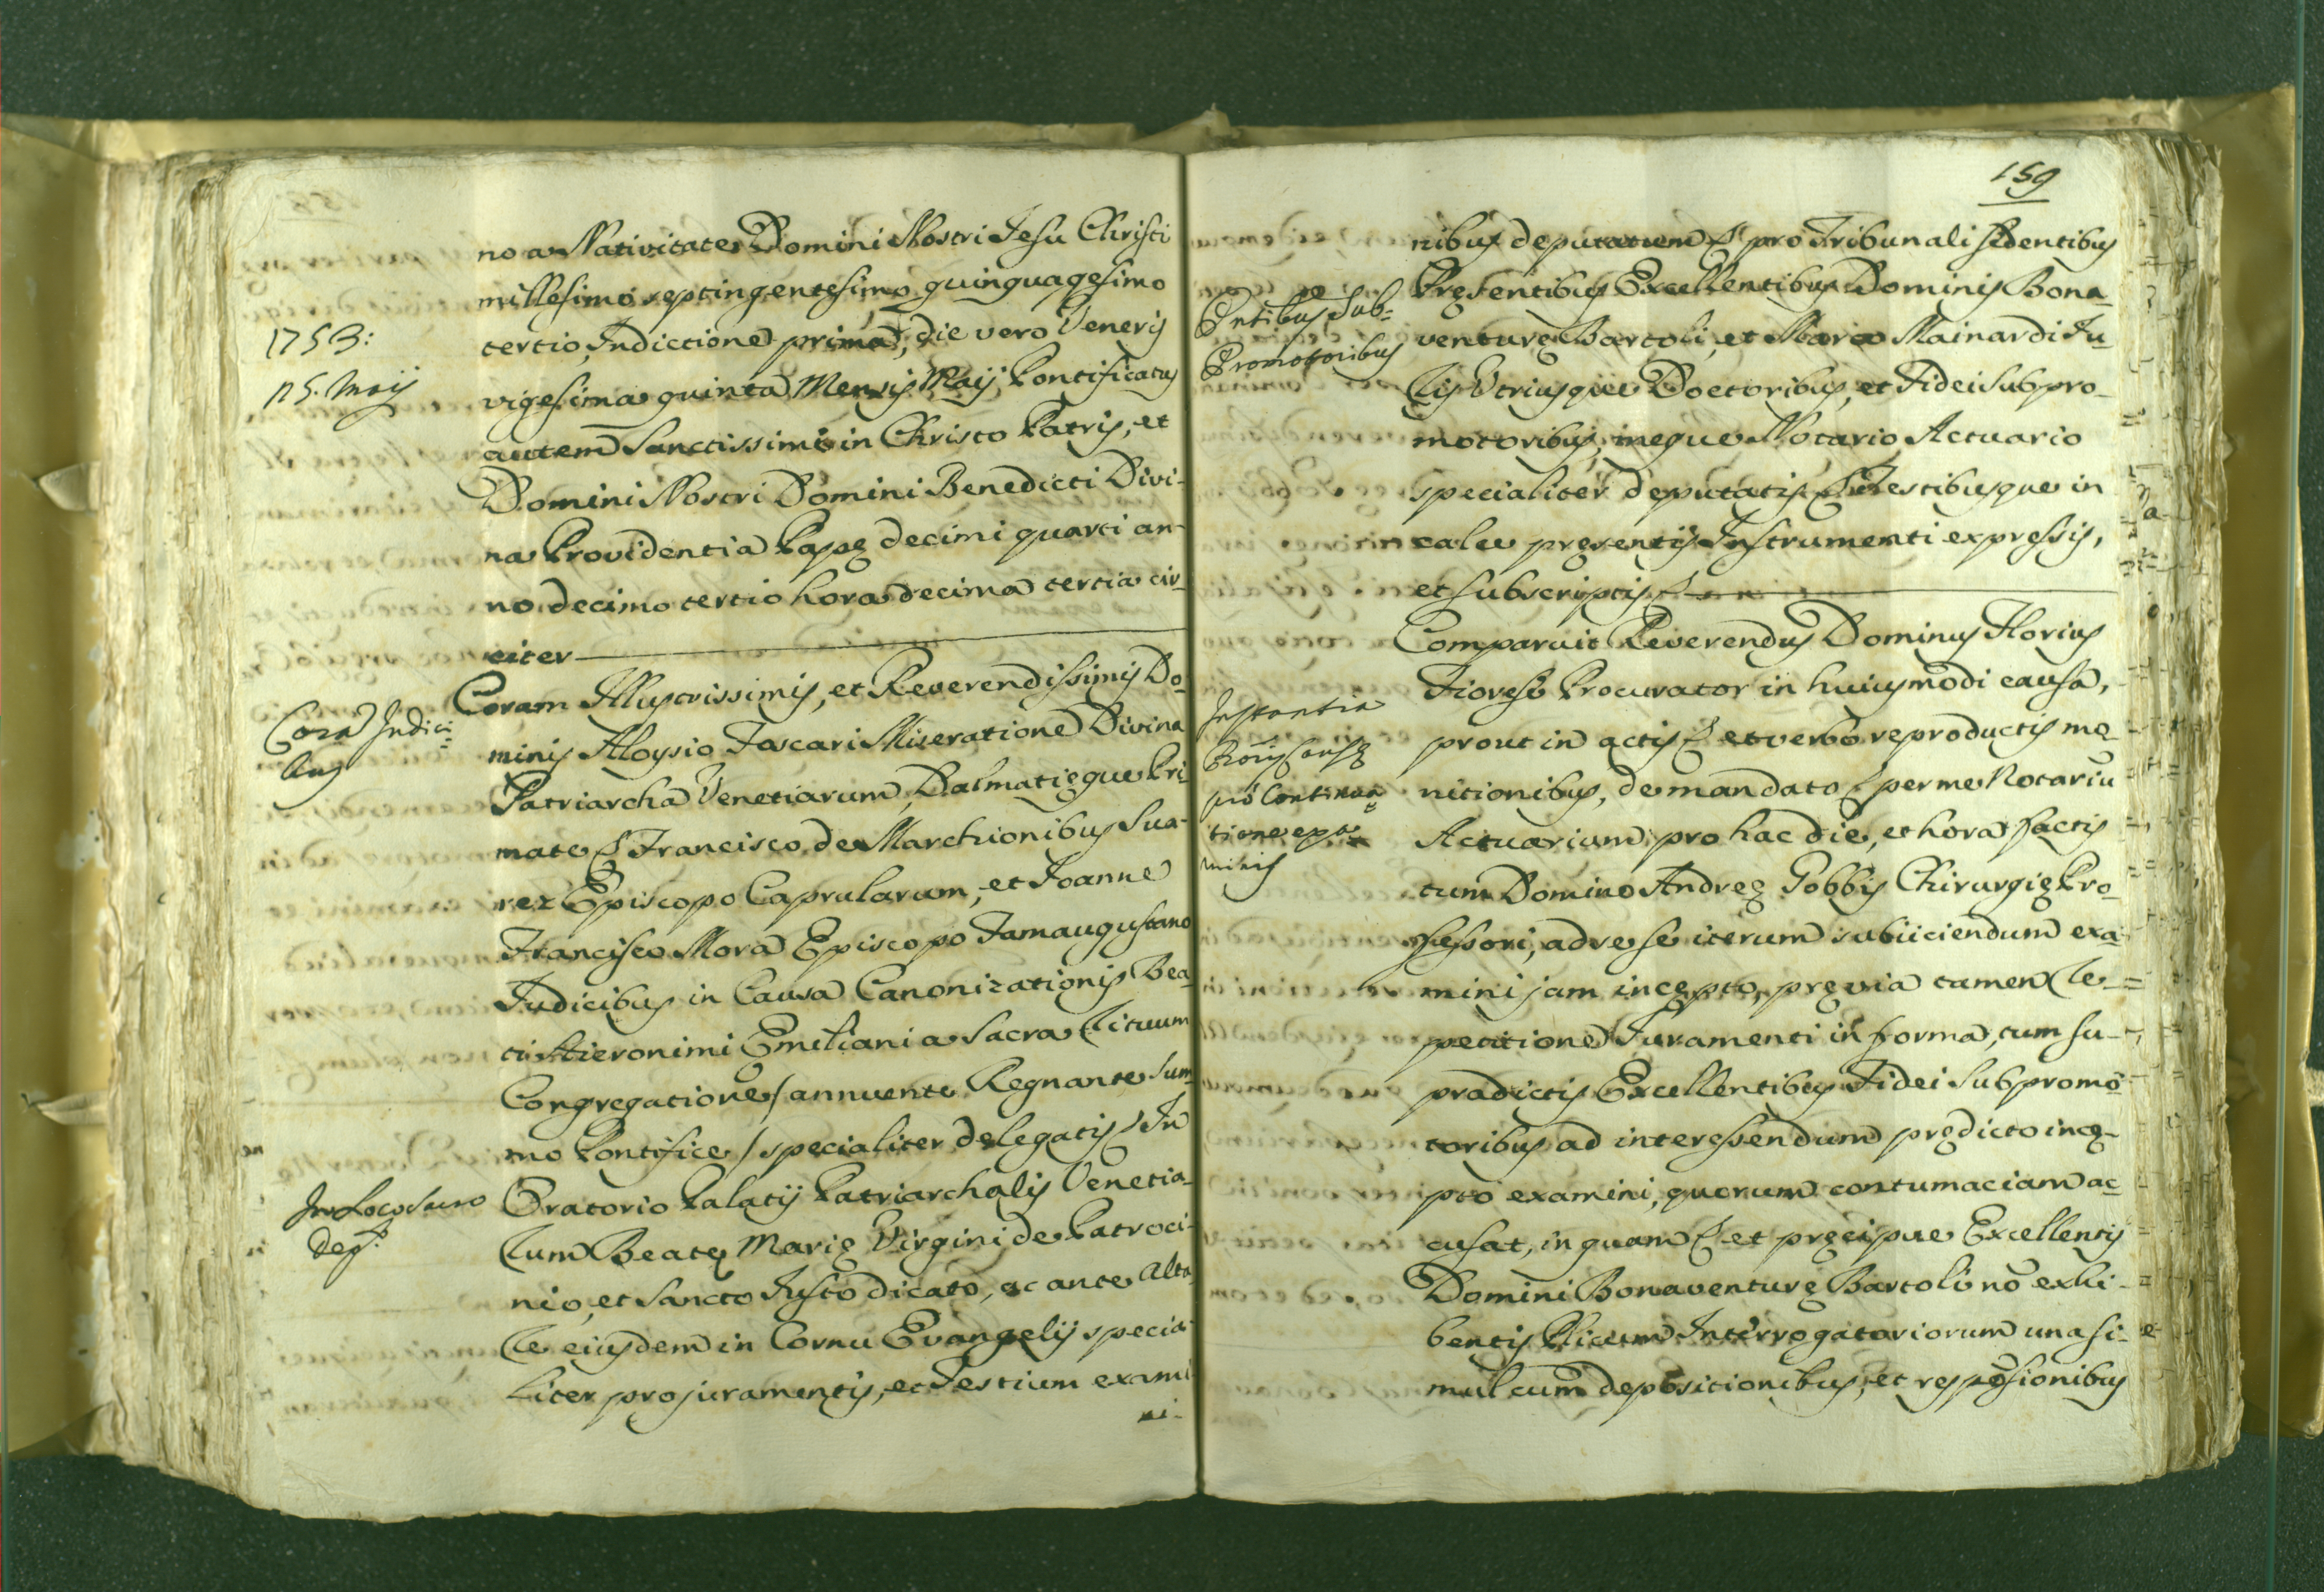 no a Nativitate Domini Nostri Jesu Christi
millesimo septingentesimo quinquagesimo
tertio, Indictione prima, die vero Veneris
vigesima quinta Mensis Maij Pontificatus
autem Sanctissimi in Christo Patris, et
Domini Nostri Domini Benedicti Divi-
na Providentia Papę decimi quarti an-
no decimo tertio hora decima tertia cir-
citer
1753:
25. Maij
Coram Illustrissimis, et Reverendissimis Do-
minis Aloysio Foscari Miseratione Divina
Patriarcha Venetiarum, Dalmatięque Pri-
mate & Francisco de Marchionibus Sua-
rez Episcopo Caprularum, et Joanne
Francisco Mora Episcopo Famaugustano
Judicibus in Causa Canonizationis Bea-
ti Hieronimi Emiliani a Sacra Rituum
Congregatione / annuente Regnante Sum-
mo Pontifice / specialiter delegatis & In
Oratorio Palatij Patriarchalis Venetia-
rum Beatę Marię Virgini de Patroci-
nio, et Sancto Justo dicato, ac ante Alta-
re eiusdem in Cornu Evangelij specia-
liter pro juramentis, et Testium exami-
ni-
Corã Judici-
bus
In Loco
dep.
159
nibus deputatum & pro Tribunali sedentibus
Pręsentibus Excellentibus Dominis Bona-
venturę Bartoli, et Mario Mainardi Ju-
ris Utriusque Doctoribus, et Fidei Subpro-
motoribus, meque Notario Actuario
specialiter deputatis & Testibusque in
calce pręsentis Instrumenti expressis,
et subscriptis &
Pntibus Sub-
Promotoribus
Comparuit Reverendus Dominus Florius
Fiorese Procurator in huiusmodi causa,
prout in actis & et verbo reproductis mo-
nitionibus, de mandato & per me Notariũ
Actuarium pro hac die, et hora factis
tum Domino Andreę Gobbis Chirurgię Pro-
fessori, ad se se iterum subiiciendum exa-
mini jam incępto, pręvia tamen re-
petitione Juramenti in forma, tum su-
pradictis Excellentibus Fidei Subpromo-
toribus ad interessendum prędicto incę-
pto examini, quorum contumaciam ac-
cusat, in quam & et pręcipue Excellentis
Domini Bonaventurę Bartoli nõ exhi-
bentis Plicum Interrogatoriorum una si-
mul cum depositionibus, et respõsionibus
Instantia
pro Continua-
tione exa-
minis